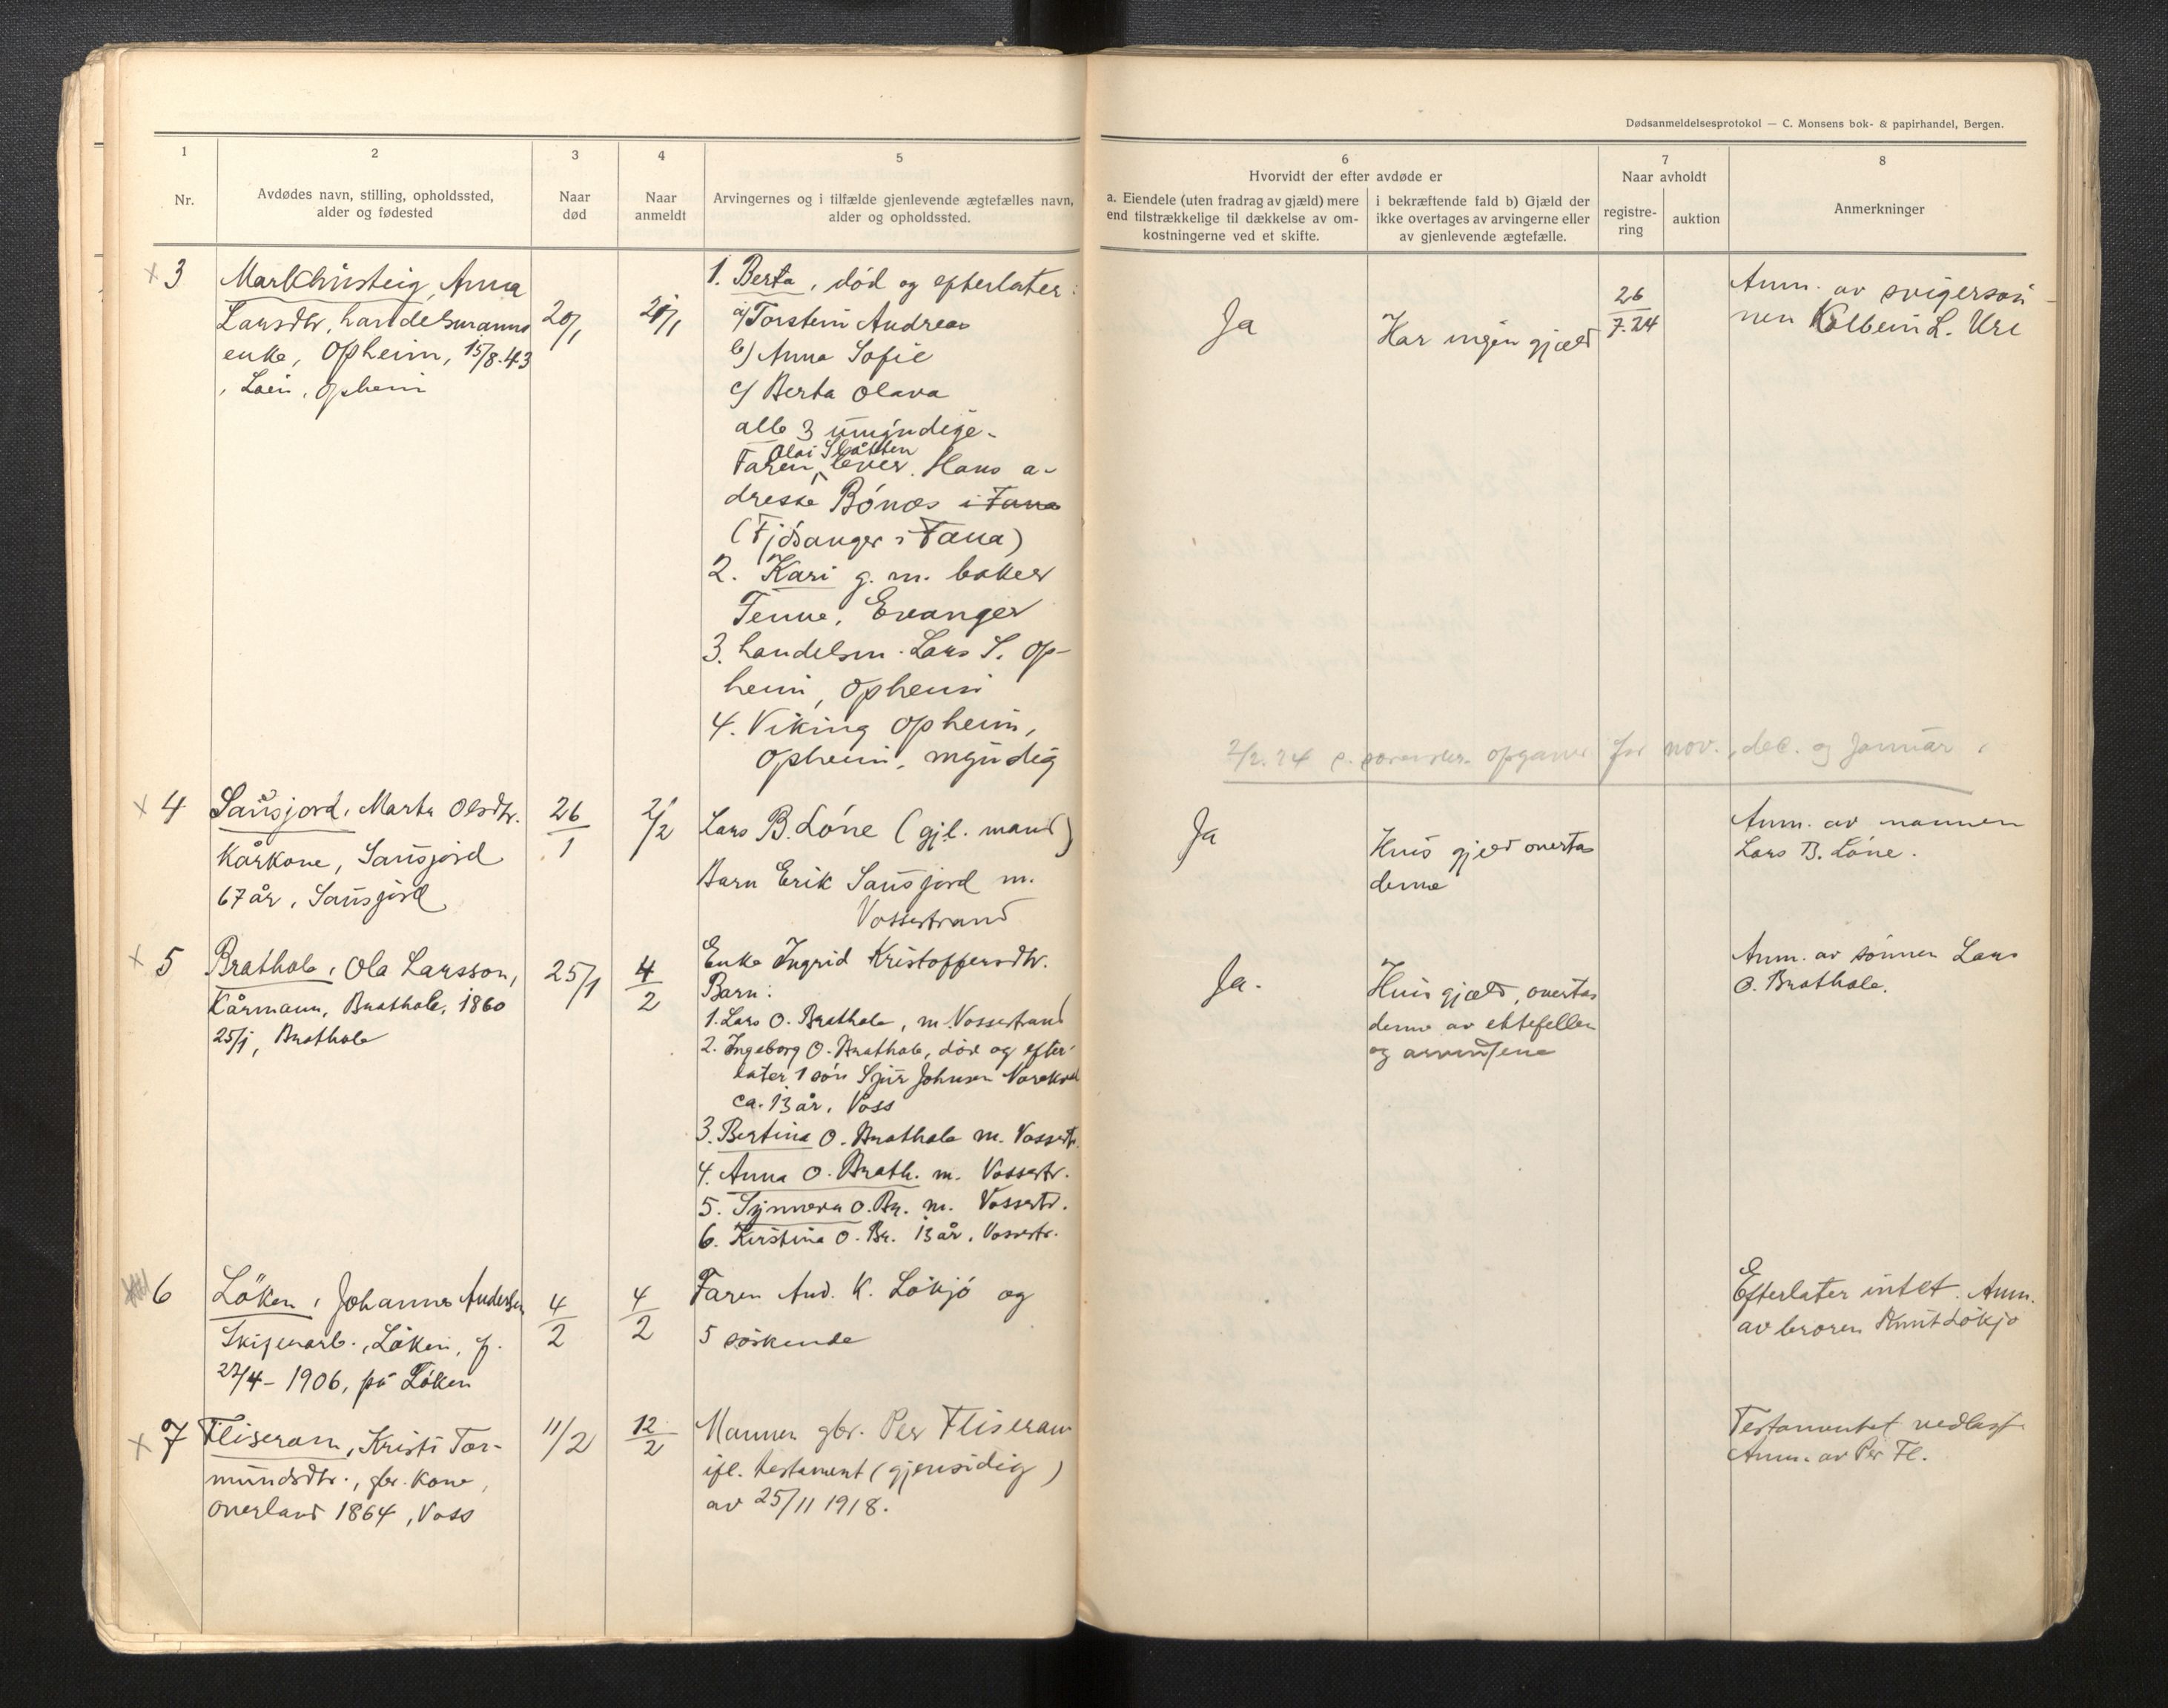 Dødsanmeldelsesprotokol — C. Monsens bok- & papirhandel, Bergen.
1
Nr.
2
Avdødes navn, stilling, opholdssted,
alder og fødested
3
Naar
død
4
Naar
anmeldt
5
Arvingernes og i tilfælde gjenlevende ægtefælles navn,
alder og opholdssted.
6
Hvorvidt der efter avdøde er
a. Eiendele (uten fradrag av gjæld) mere
end tilstrækkelige til dækkelse av om-
kostningerne ved et skifte.
i bekræftende fald b) Gjæld der
ikke overtages av arvingerne eller
av gjenlevende ægtefælle.
7
Naar avholdt
registre-
ring
auktion
8
Anmerkninger
3
Anna
Larsdtr, handelsmanns
enke, Opheim, 15/8.43
, Løen, Opheim
20/1
21/1
1. Berta, død og efterlater:
a) Torstein Andreas
b) Anna Sofie
c) Berta Olava
alle 3 umyndige.
Olai
Faren lever. Hans a-
dresse Bönes i Fana
(Fjösanger i Fana)
2. Kari g. m. baker
Tenne, Evanger
3. handelsm. Lars S. Op-
heim, Opheim
4. Viking Opheim,
Opheim, myndig
Ja
Har ingen gjæld
26
7.24
Anm. av svigersøn-
nen Kolbein L. Ure
2/2.24 opgave for nov., dec. og januar
4
Saüsjord, Marta Olsdtr.
Kårkone, Saüsjord
67 år, Saüsjord
26
1
2/2
Lars B. Löne (gjl. mand)
Barn Erik Saüsjord m.
Vossestrand
Ja
Huis gjeld overtas
denne
Anm. av mannen
Lars B. Löne.
5
Brathole, Ola Larsson,
Kårmann, Brathole, 1860
25/1, Brathole
25/1
4
2
Enke Ingrid Kristoffersdtr.
Barn:
1. Lars O. Brathole, m. Vossestrand
2. Ingeborg O. Brathole, död og efter-
later 1 sön Sjur Johnsen
ca. 13 år, Voss
3. Bertina O. Brathole m. Vossestr.
4. Anna O. Brath. m. Vossestr.
5. Synneva O. Br. m. Vossestr.
6. Kirstina O. Br. 13 år, Vossestr.
Ja.
Huis gjæld, overtas
denne av ektefellen
og arvingene
Anm. av sönnen Lars
O. Brathole.
6
Löken, Johannes Andersen
Skifjerarb., Löken, f.
27/4-1906, på Löken
4
2
4
2
Faren And. K. Lökjö og
5 söskende
Efterlater intet. Anm.
av broren Knut Lökjö
7
Fliseram, Kristi Tor-
mundsdtr., gbr. kone,
Overland 1864, Voss
11/2
12
2
Mannen gbr. Per Fliseram
ifl. testament (gjensidig)
av 25/11 1918.
Testamentet vedlagt
Anm. av Per Fl.